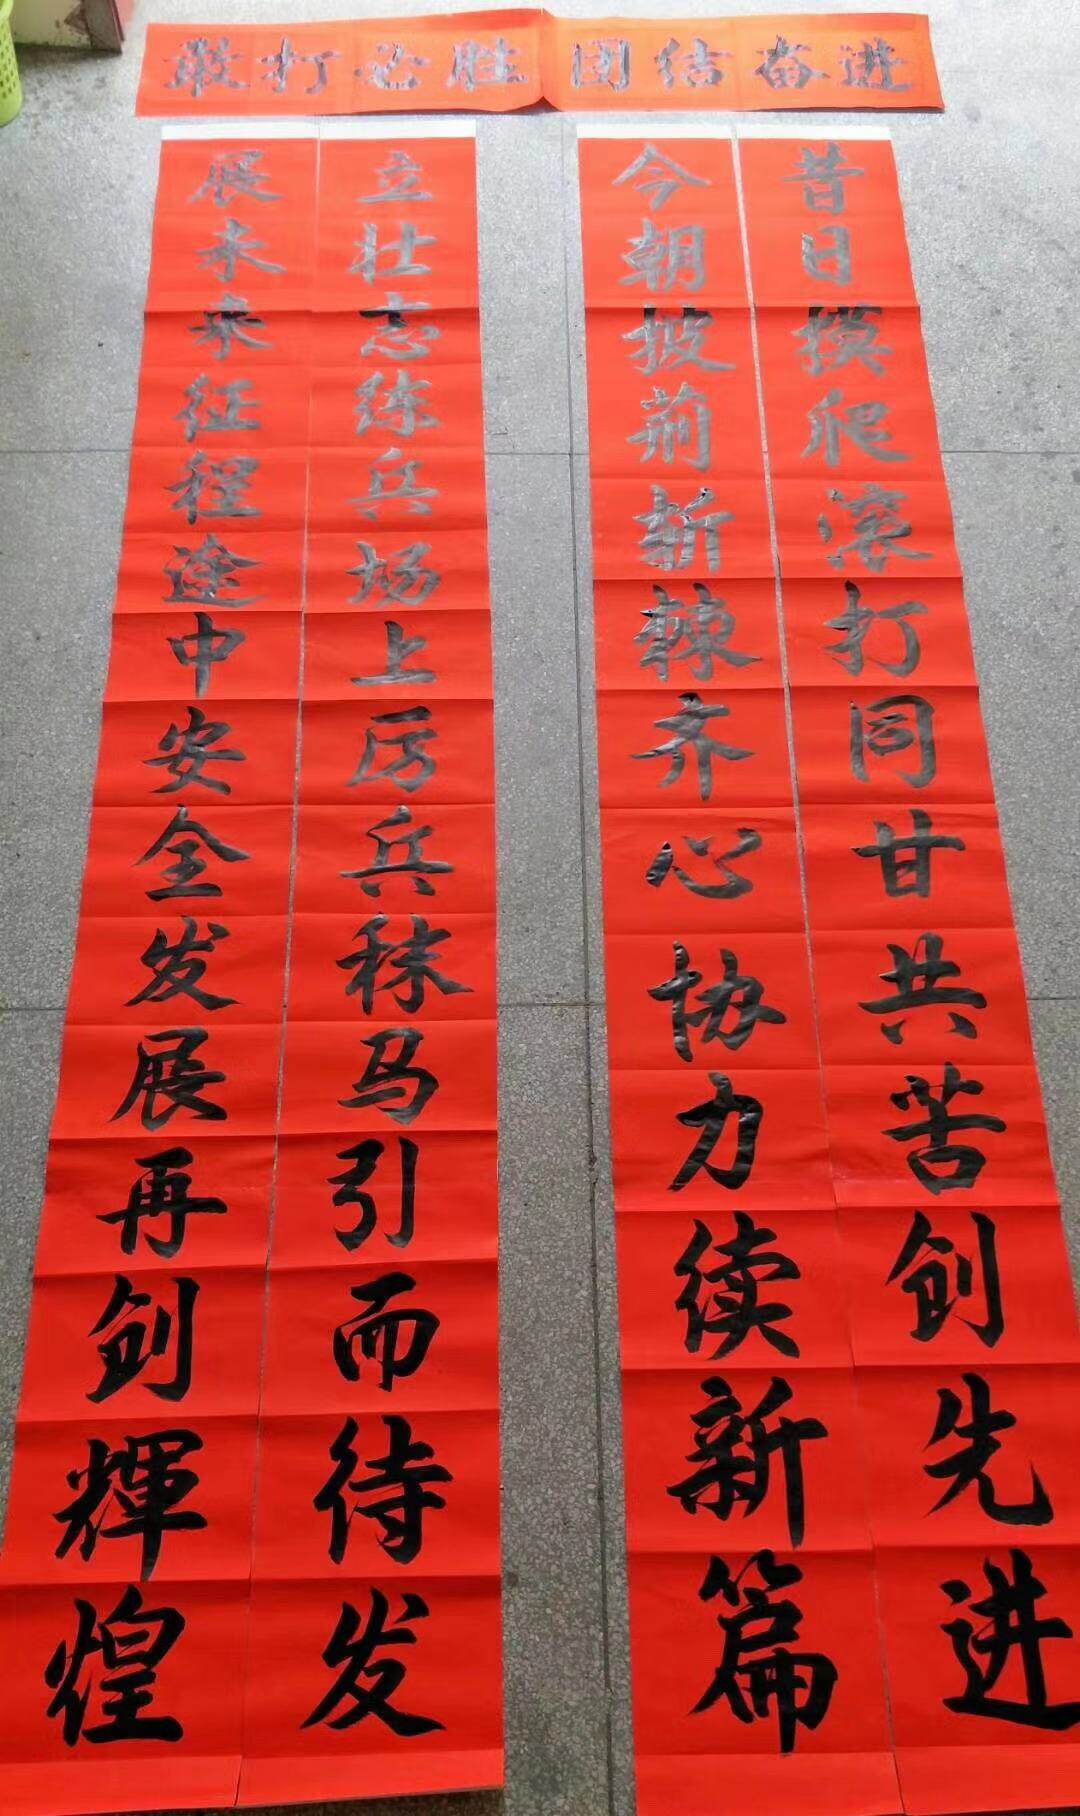 敢打必胜 团结奋进
昔日摸爬滚打同甘共苦创先进
今朝披荆斩棘齐心协力续新篇
立壮志练兵场上厉兵秣马引而待发
展未来征程途中安全发展再创輝煌